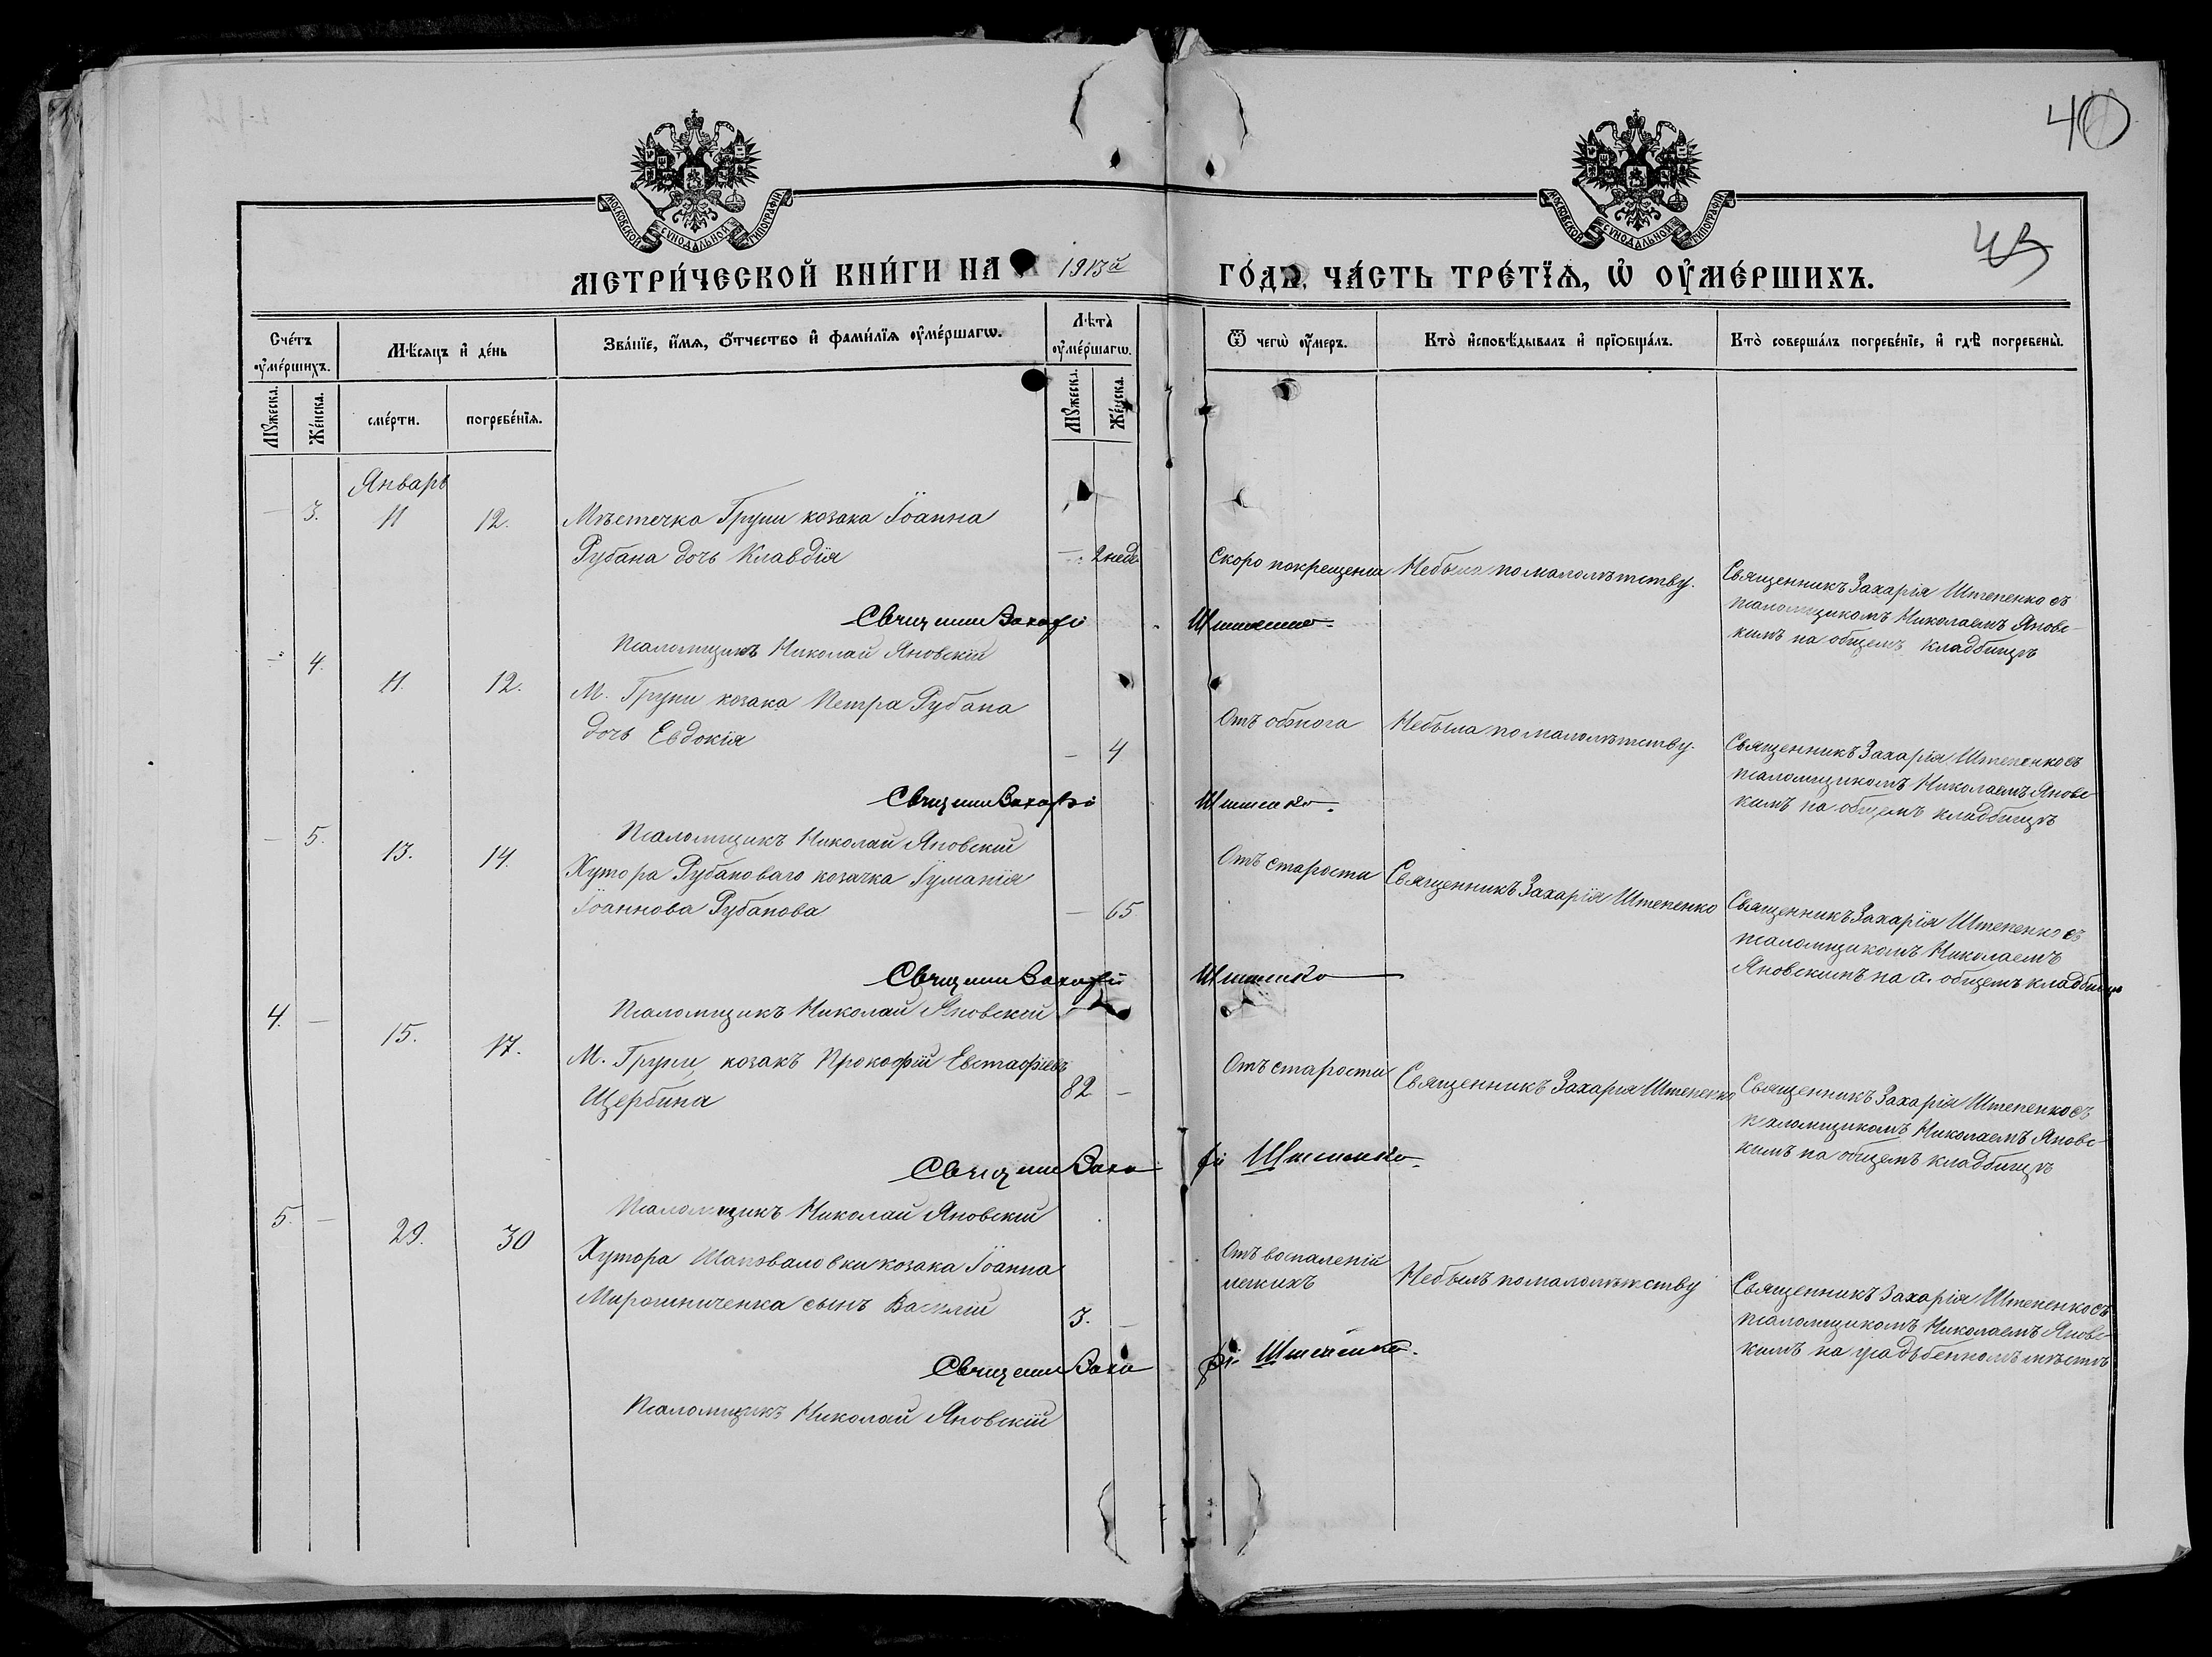 40
43
МОСКОВСКОЙ СѴНОДАЛЬНОЙ ТИПОГРАФІИ
МОСКОВСКОЙ СѴНОДАЛЬНОЙ ТИПОГРАФІИ
МЕТРИ́ЧЕСКОЙ КНИ́ГИ НА 1913й
ГО́ДЪ, ЧА́СТЬ ТРЕ́ТІѦ, Ѡ҆ ОУ҆МЕ́РШИХЪ.
Сче́тъ оу҆ме́ршихъ.
Мѣ́сяцъ и҆ де́нь
Зва́нїе, и҆́мя, ѻ҆́тчество и҆ фами́лїя оу҆ме́ршагѡ.
Лѣ̀та оу҆ме́ршагѡ.
Ѿ чегѡ̀ оу҆́меръ.
Кто̀ и҆сповѣ́дывалъ и҆ прїѻбща́лъ.
Кто̀ соверша́лъ погребе́нїе, и҆ гдѣ̀ погребены̀.
Мꙋ́жеска.
Же́нска.
сме́рти.
погребе́нїя.
Мꙋ́жеска.
Же́нска.
Январь
— 3. 11 12. Мѣстечка Груни козака Іоанна
Рубана дочь Клавдія — 2 неде.
Скоро по крещеніи
Небыла по малолѣтству.
Священникъ Захарія Штепенко съ
псаломщикомъ Николаемъ Яновс-
кимъ на общемъ кладбищѣ
Священникъ Захарій Штепенко.
Псаломщикъ Николай Яновскій
— 4. 11. 12. М. Груни козака Петра Рубана
дочь Евдокія — 4
Небыла по малолѣтству.
Священникъ Захарія Штепенко съ
псаломщикомъ Николаемъ Яновс-
кимъ на общемъ кладбищѣ
Священникъ Захарій Штепенко.
Псаломщикъ Николай Яновскій
— 5. 13. 14. Хутора Рубановаго козачка
Іоаннова Рубанова — 65
Отъ старости
Священникъ Захарія Штепенко
Священникъ Захарія Штепенко съ
псаломщикомъ Николаемъ
Яновскимъ на общемъ кладбищѣ
Священникъ Захарій Штепенко
Псаломщикъ Николай Яновскій
4. — 15. 17. М. Груни, козакъ Прокофій Евстафіевъ
Щербина 82 —
Отъ старости
Священникъ Захарія Штепенко
Священникъ Захарія Штепенко съ
псаломщикомъ Николаемъ Яновс-
кимъ на общемъ кладбищѣ
Священникъ Захарій Штепенко.
Псаломщикъ Николай Яновскій
5. — 29. 30 Хутора Шаповаловки козака Іоанна
Мирошниченка сынъ Василій 3. —
Отъ воспаленій
легкихъ
Небылъ по малолѣтству
Священникъ Захарія Штепенко съ
псаломщикомъ Николаемъ Яновс-
кимъ на усадьбенномъ мѣстѣ
Священникъ Захарій Штепенко.
Псаломщикъ Николай Яновскій